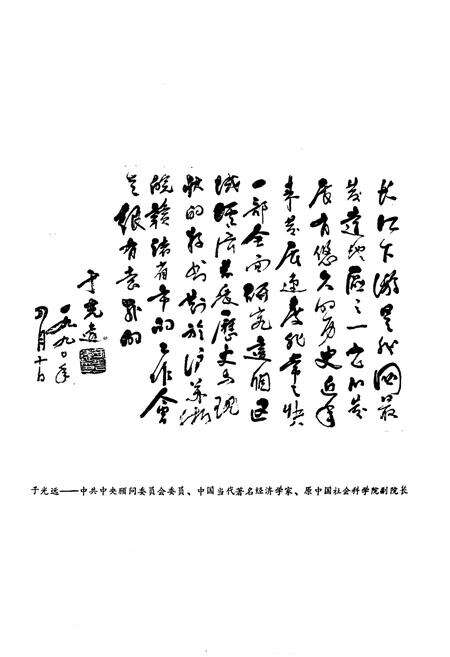 长江下游是我国最
发达地区之一它的发
展有悠久的历史近年
来发展速度非常之快
一部全面研究这个区
域经济发展历史与现
状的在书对于沪苏浙
皖赣诸省市的工作会
是很有意义的
于光远
一九九〇年
四月十日
于光远——中共中央顾问委员会委员、中国当代著名经济学家、原中国社会科学院副院长